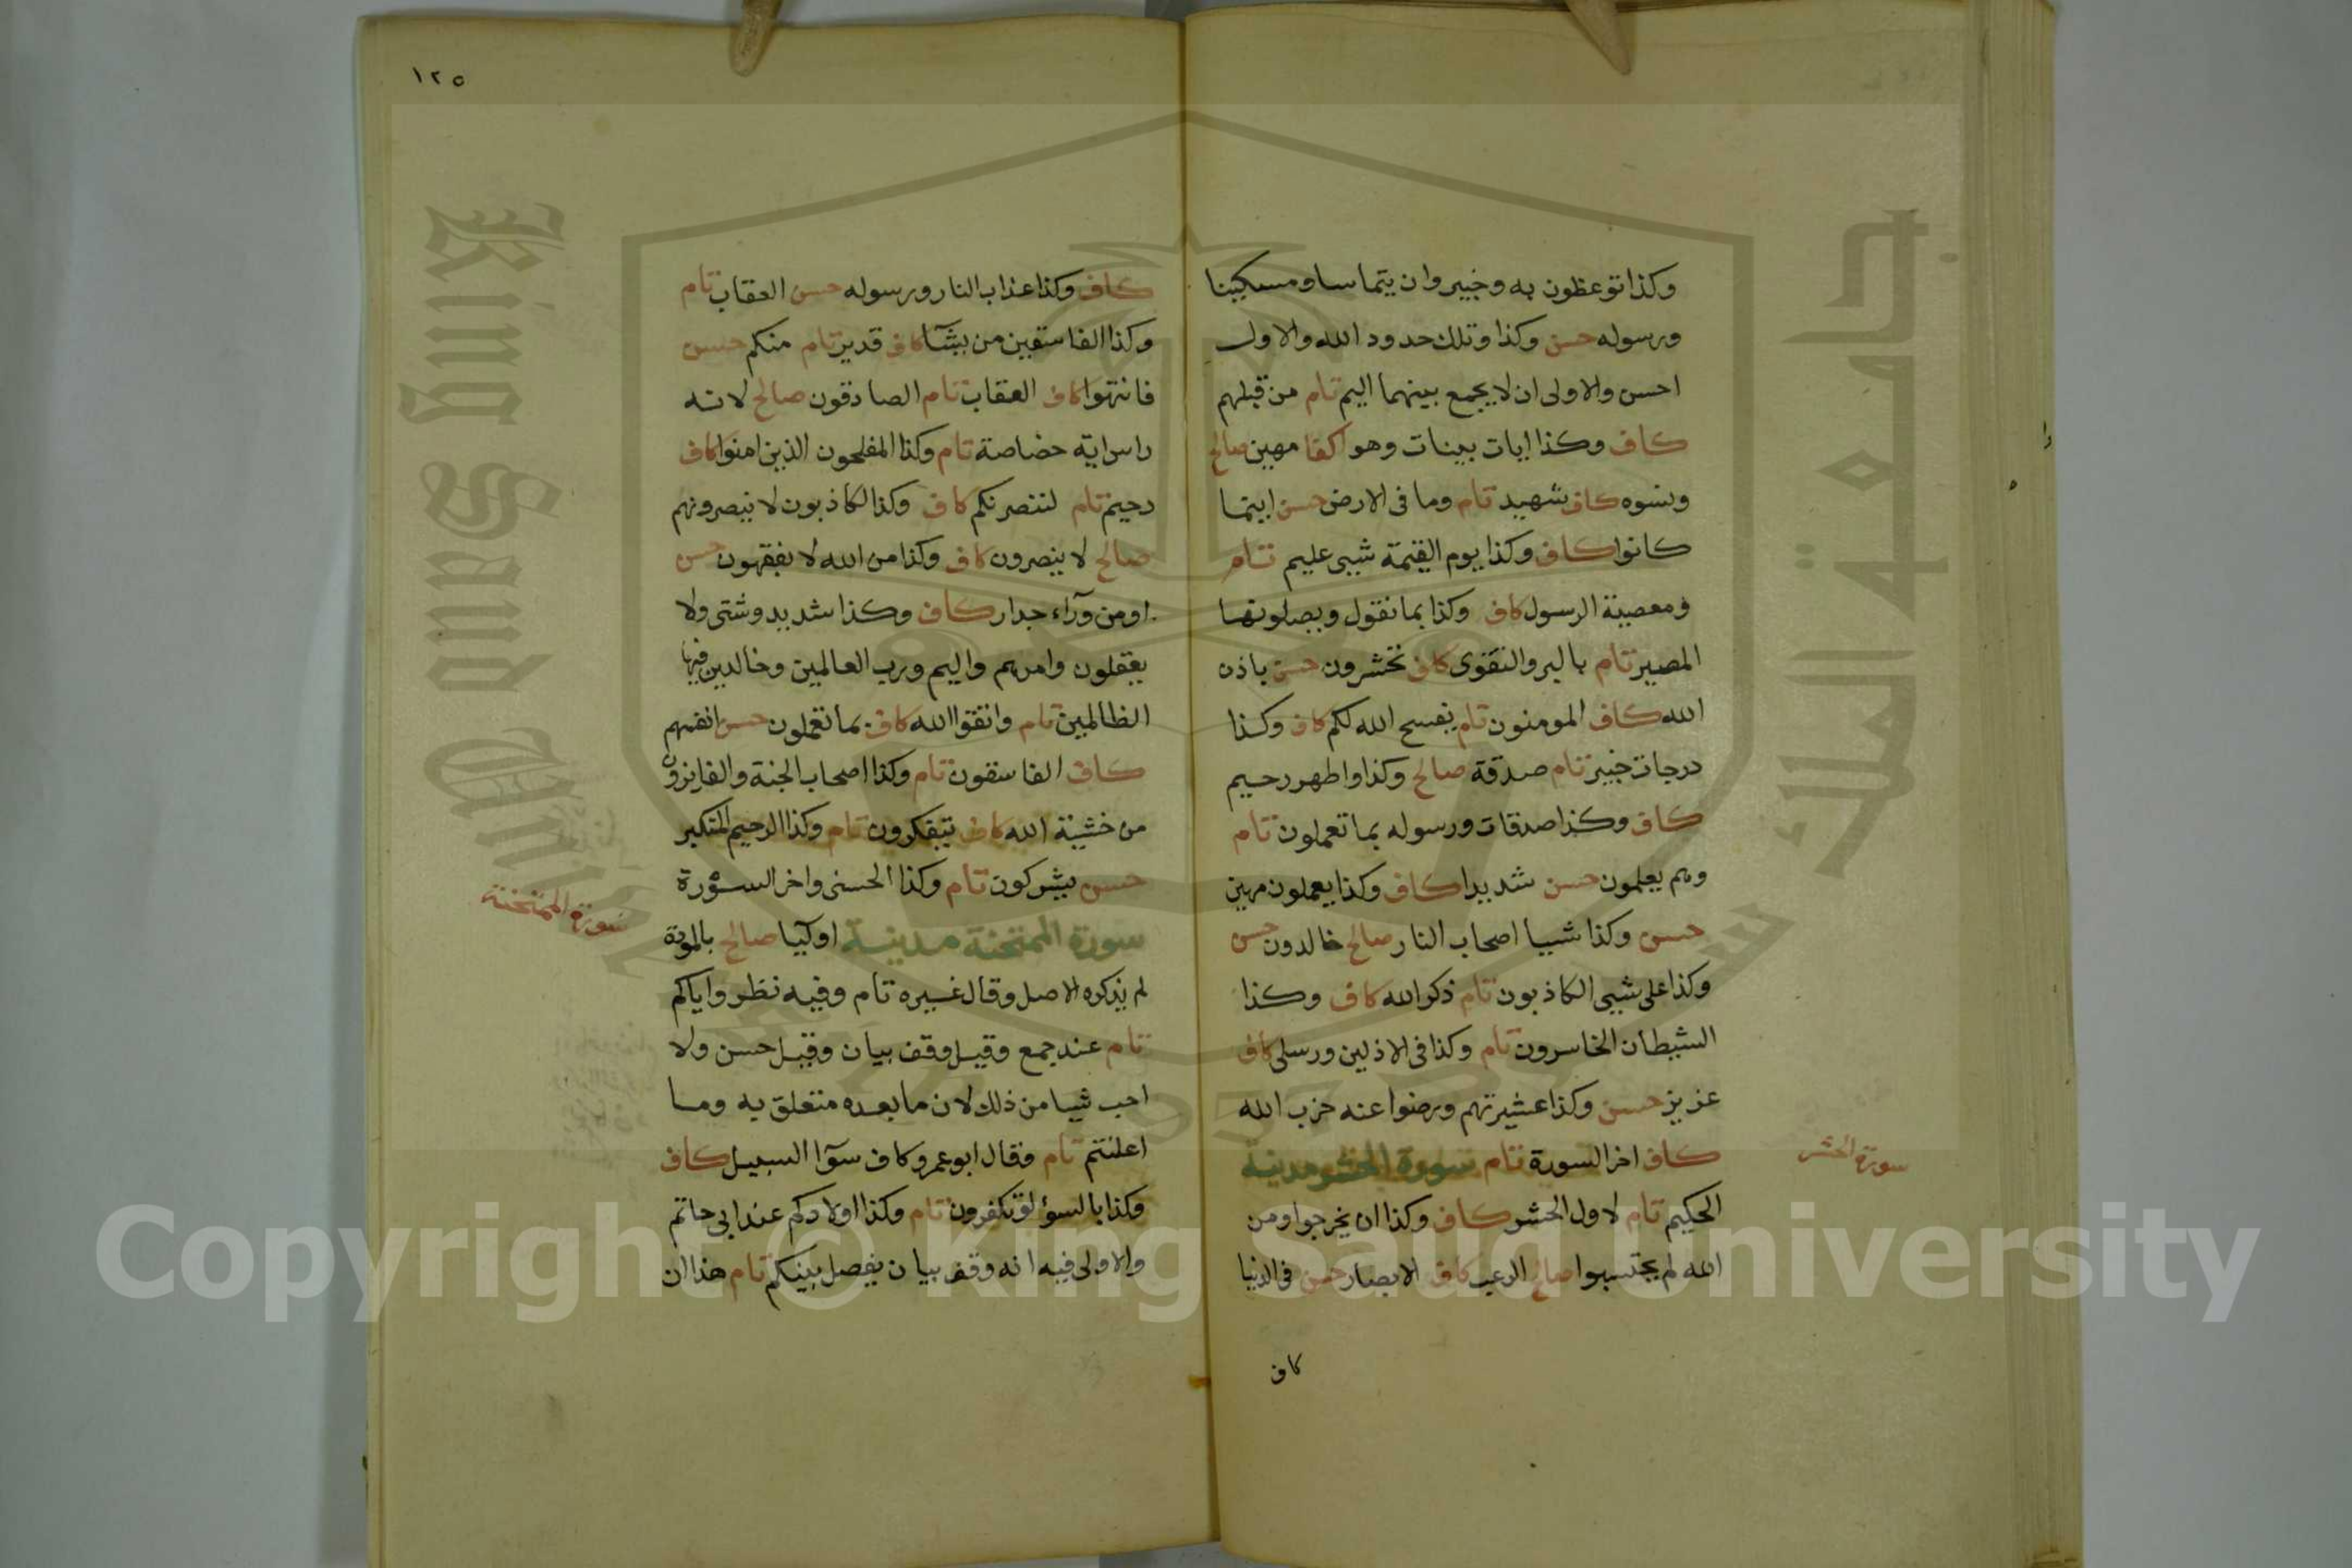 وكذا توعظون به وخبير وان يتماسا ومسكينا
ورسوله حسن وكذا وتلك حدود الله والاول
احسن والاولى ان لا يجمع بينهما اليم تام من قبلهم
كاف وكذا ايات بينات وهو اكفا مهين صالح
ونسوه كاف شهيد تام وما فى الارض حسن اينما
كانوا كاف وكذا يوم القيمة شيى عليم تام
ومعصية الرسول كاف وكذا بما نقول ويصلونها
المصير تام بالبر والتقوى كاف تحشرون حسن باذن
الله كاف المومنون تام يفسح الله لكم كاف وكذا
درجات خبير تام صدقة صالح وكذا واطهر رحيم
كاف وكذا صدقات ورسوله بما تعملون تام
وهم يعلمون حسن شديدا كاف وكذا يعملون مهين
حسن وكذا شييا اصحاب النار صالح خالدون حسن
وكذا على شيى الكاذبون تام ذكر الله كاف وكذا
الشيطان الخاسرون تام وكذا فى الاذلين ورسلى كاف
عزيز حسن وكذا عشيرتهم ورضوا عنه حزب الله
كاف اخر السورة تام سورة الحشر مدنية
سورة الحشر
الحكيم تام لاول الحشر كاف وكذا ان يخرجوا ومن
الله لم يحتسبوا صالح الرعب كاف الابصار حسن فى الدنيا
كاف
١٢٥
كاف وكذا عذاب النار ورسوله حسن العقاب تام
وكذا الفاسقين من يشآ كاف قدير تام منكم حسن
فانتهوا كاف العقاب تام الصادقون صالح لانه
راس اية خصاصة تام وكذا المفلحون الذين امنوا كاف
رحيم تام لننصرنكم كاف وكذا لكاذبون لا ينصرونهم
صالح لا ينصرون كاف وكذا من الله لا يفقهون حسن
او من ورآء جدار كاف وكذا شديد وشتى ولا
يعقلون وامرهم واليم ورب العالمين وخالدين فيها
الظالمين تام واتقوا الله كاف بما تعملون حسن انفسهم
كاف الفاسقون تام وكذا اصحاب الجنة والفايزون
من خشية الله كاف يتفكرون تام وكذا الرحيم المتكبر
حسن يشركون تام وكذا الحسنى واخر السورة
سورة الممتحنة
سورة الممتحنة مدنية اوليآ صالح بالمودة
لم يذكره الاصل وقال غيره تام وفيه نظر واياكم
تام عند جمع وقيل وقف بيان وقيل حسن ولا
احب شيا من ذلك لان ما بعده متعلق به وما
اعلنتم تام فقال ابو عمرو كاف سوآ السبيل كاف
وكذا بالسوء لو تكفرون تام وكذا اولادكم عند ابى حاتم
والاولى فيه انه وقف بيان يفصل بينكم تام هذا ان
Copyright © King Saud University